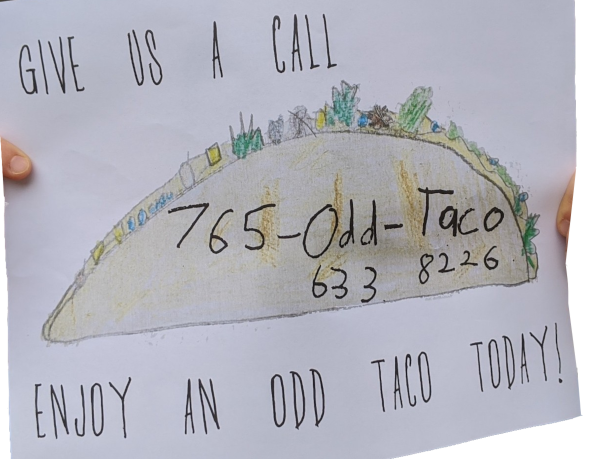 GIVE US A CALL
765-Odd-Taco
633 8226
ENJOY AN ODD TACO TODAY!